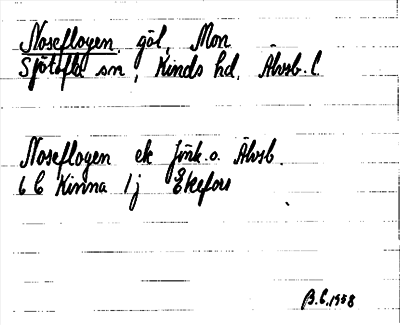 Noseflogen, göl, Mon
Sjötofta sn, Kinds hd, Älvsb. l.
Noseflogen ek Jönk.o. Älvsb.
6 C Kinna 1j Ekefors
B.C. 1958